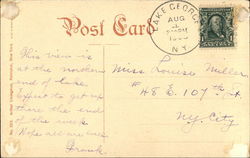 Post Card
LAKE GEORGE
AUG
N.Y.
This view is
at the northern
end of lake.
Expect to get up
there the end
of the week.
Hope all are well
Frank.
Miss Louise Miller
48 E. 107th St.
N.Y. City